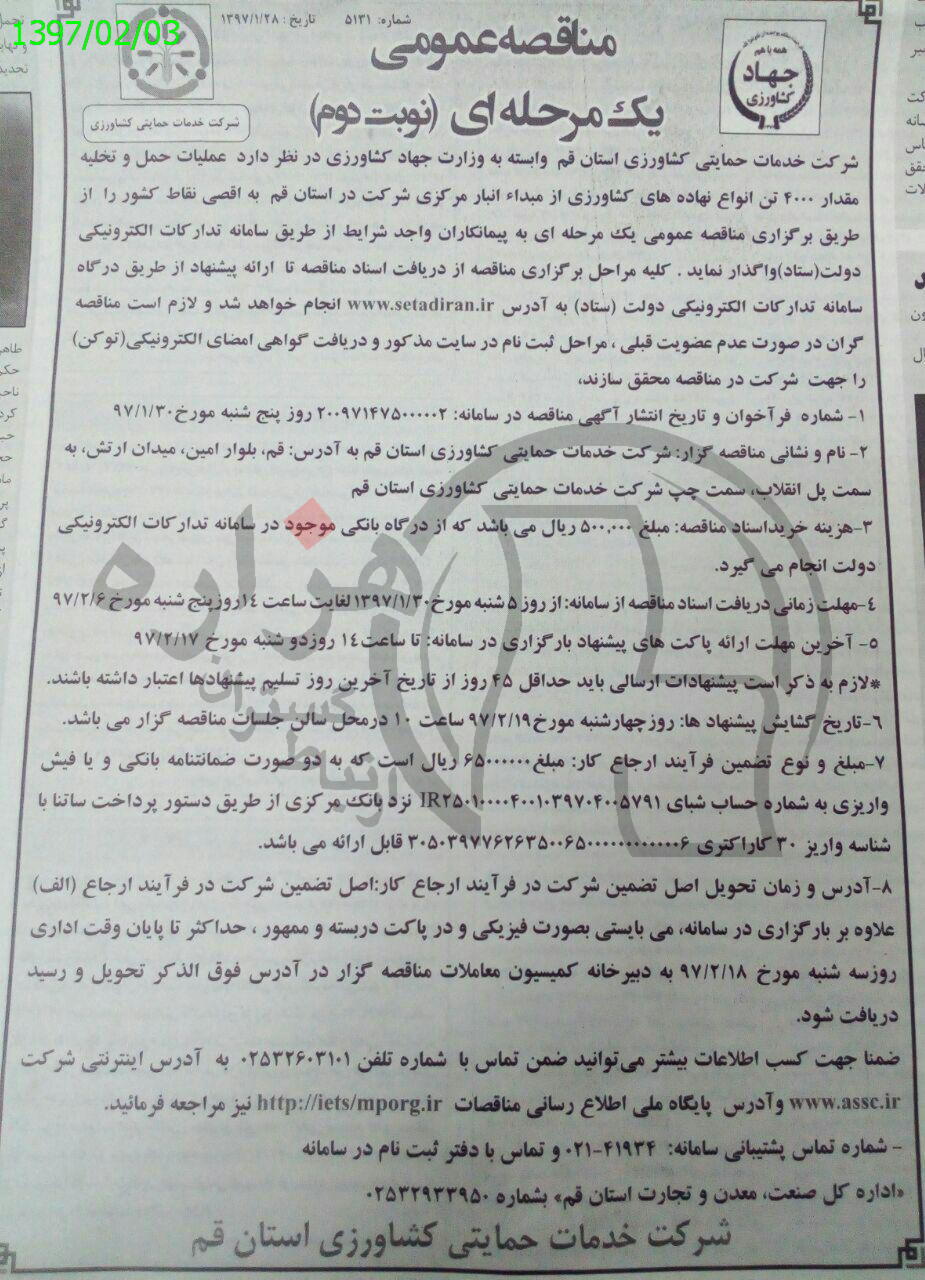 1397/02/03
شماره: ۵۱۳۱ تاریخ: ۱۳۹۷/۱/۲۸
مناقصه عمومی
یک مرحله ای (نوبت دوم)
همه با هم
جهاد
کشاورزی
شرکت خدمات حمایتی کشاورزی
شرکت خدمات حمایتی کشاورزی استان قم وابسته به وزارت جهاد کشاورزی در نظر دارد عملیات حمل و تخلیه
مقدار ۴۰۰۰ تن انواع نهاده های کشاورزی از مبداء انبار مرکزی شرکت در استان قم به اقصی نقاط کشور را از
طریق برگزاری مناقصه عمومی یک مرحله ای به پیمانکاران واجد شرایط از طریق سامانه تدارکات الکترونیکی
دولت(ستاد)واگذار نماید . کلیه مراحل برگزاری مناقصه از دریافت اسناد مناقصه تا ارائه پیشنهاد از طریق درگاه
سامانه تدارکات الکترونیکی دولت (ستاد) به آدرس www.setadiran.ir انجام خواهد شد و لازم است مناقصه
گران در صورت عدم عضویت قبلی ، مراحل ثبت نام در سایت مذکور و دریافت گواهی امضای الکترونیکی(توکن)
را جهت شرکت در مناقصه محقق سازند،
۱- شماره فرآخوان و تاریخ انتشار آگهی مناقصه در سامانه: ۲۰۰۹۷۱۴۷۵۰۰۰۰۰۲ روز پنج شنبه مورخ۹۷/۱/۳۰
۲- نام و نشانی مناقصه گزار: شرکت خدمات حمایتی کشاورزی استان قم به آدرس: قم، بلوار امین، میدان ارتش، به
سمت پل انقلاب، سمت چپ شرکت خدمات حمایتی کشاورزی استان قم
۳-هزینه خریداسناد مناقصه: مبلغ ۵۰۰,۰۰۰ ریال می باشد که از درگاه بانکی موجود در سامانه تدارکات الکترونیکی
دولت انجام می گیرد.
۴-مهلت زمانی دریافت اسناد مناقصه از سامانه: از روز ۵ شنبه مورخ۱۳۹۷/۱/۳۰ لغایت ساعت ۱۴روز پنج شنبه مورخ ۹۷/۲/۶
۵- آخرین مهلت ارائه پاکت های پیشنهاد بارگزاری در سامانه: تا ساعت۱۴ روزدو شنبه مورخ ۹۷/۲/۱۷
*لازم به ذکر است پیشنهادات ارسالی باید حداقل ۴۵ روز از تاریخ آخرین روز تسلیم پیشنهادها اعتبار داشته باشند.
۶-تاریخ گشایش پیشنهاد ها: روزچهارشنبه مورخ۹۷/۲/۱۹ ساعت ۱۰ درمحل سالن جلسات مناقصه گزار می باشد.
۷-مبلغ و نوع تضمین فرآیند ارجاع کار: مبلغ۶۵۰۰۰۰۰۰ ریال است که به دو صورت ضمانتنامه بانکی و یا فیش
واریزی به شماره حساب شبای IR۲۵۰۱۰۰۰۰۴۰۰۱۰۳۹۷۰۴۰۰۵۷۹۱ نزد بانک مرکزی از طریق دستور پرداخت ساتنا با
شناسه واریز ۳۰ کاراکتری ۳۰۵۰۳۹۷۷۶۲۶۳۵۰۰۶۵۰۰۰۰۰۰۰۰۰۰۰۰۶ قابل ارائه می باشد.
۸-آدرس و زمان تحویل اصل تضمین شرکت در فرآیند ارجاع کار:اصل تضمین شرکت در فرآیند ارجاع (الف)
علاوه بر بارگزاری در سامانه، می بایستی بصورت فیزیکی و در پاکت دربسته و ممهور ، حداکثر تا پایان وقت اداری
روزسه شنبه مورخ ۹۷/۲/۱۸ به دبیرخانه کمیسیون معاملات مناقصه گزار در آدرس فوق الذکر تحویل و رسید
دریافت شود.
ضمنا جهت کسب اطلاعات بیشتر می‌توانید ضمن تماس با شماره تلفن ۰۲۵۳۲۶۰۳۱۰۱ به آدرس اینترنتی شرکت
www.assc.ir وآدرس پایگاه ملی اطلاع رسانی مناقصات http://iets/mporg.ir نیز مراجعه فرمائید.
- شماره تماس پشتیبانی سامانه: ۴۱۹۳۴-۰۲۱ و تماس با دفتر ثبت نام در سامانه
«اداره کل صنعت، معدن و تجارت استان قم» بشماره ۰۲۵۳۲۹۳۳۹۵۰
شرکت خدمات حمایتی کشاورزی استان قم